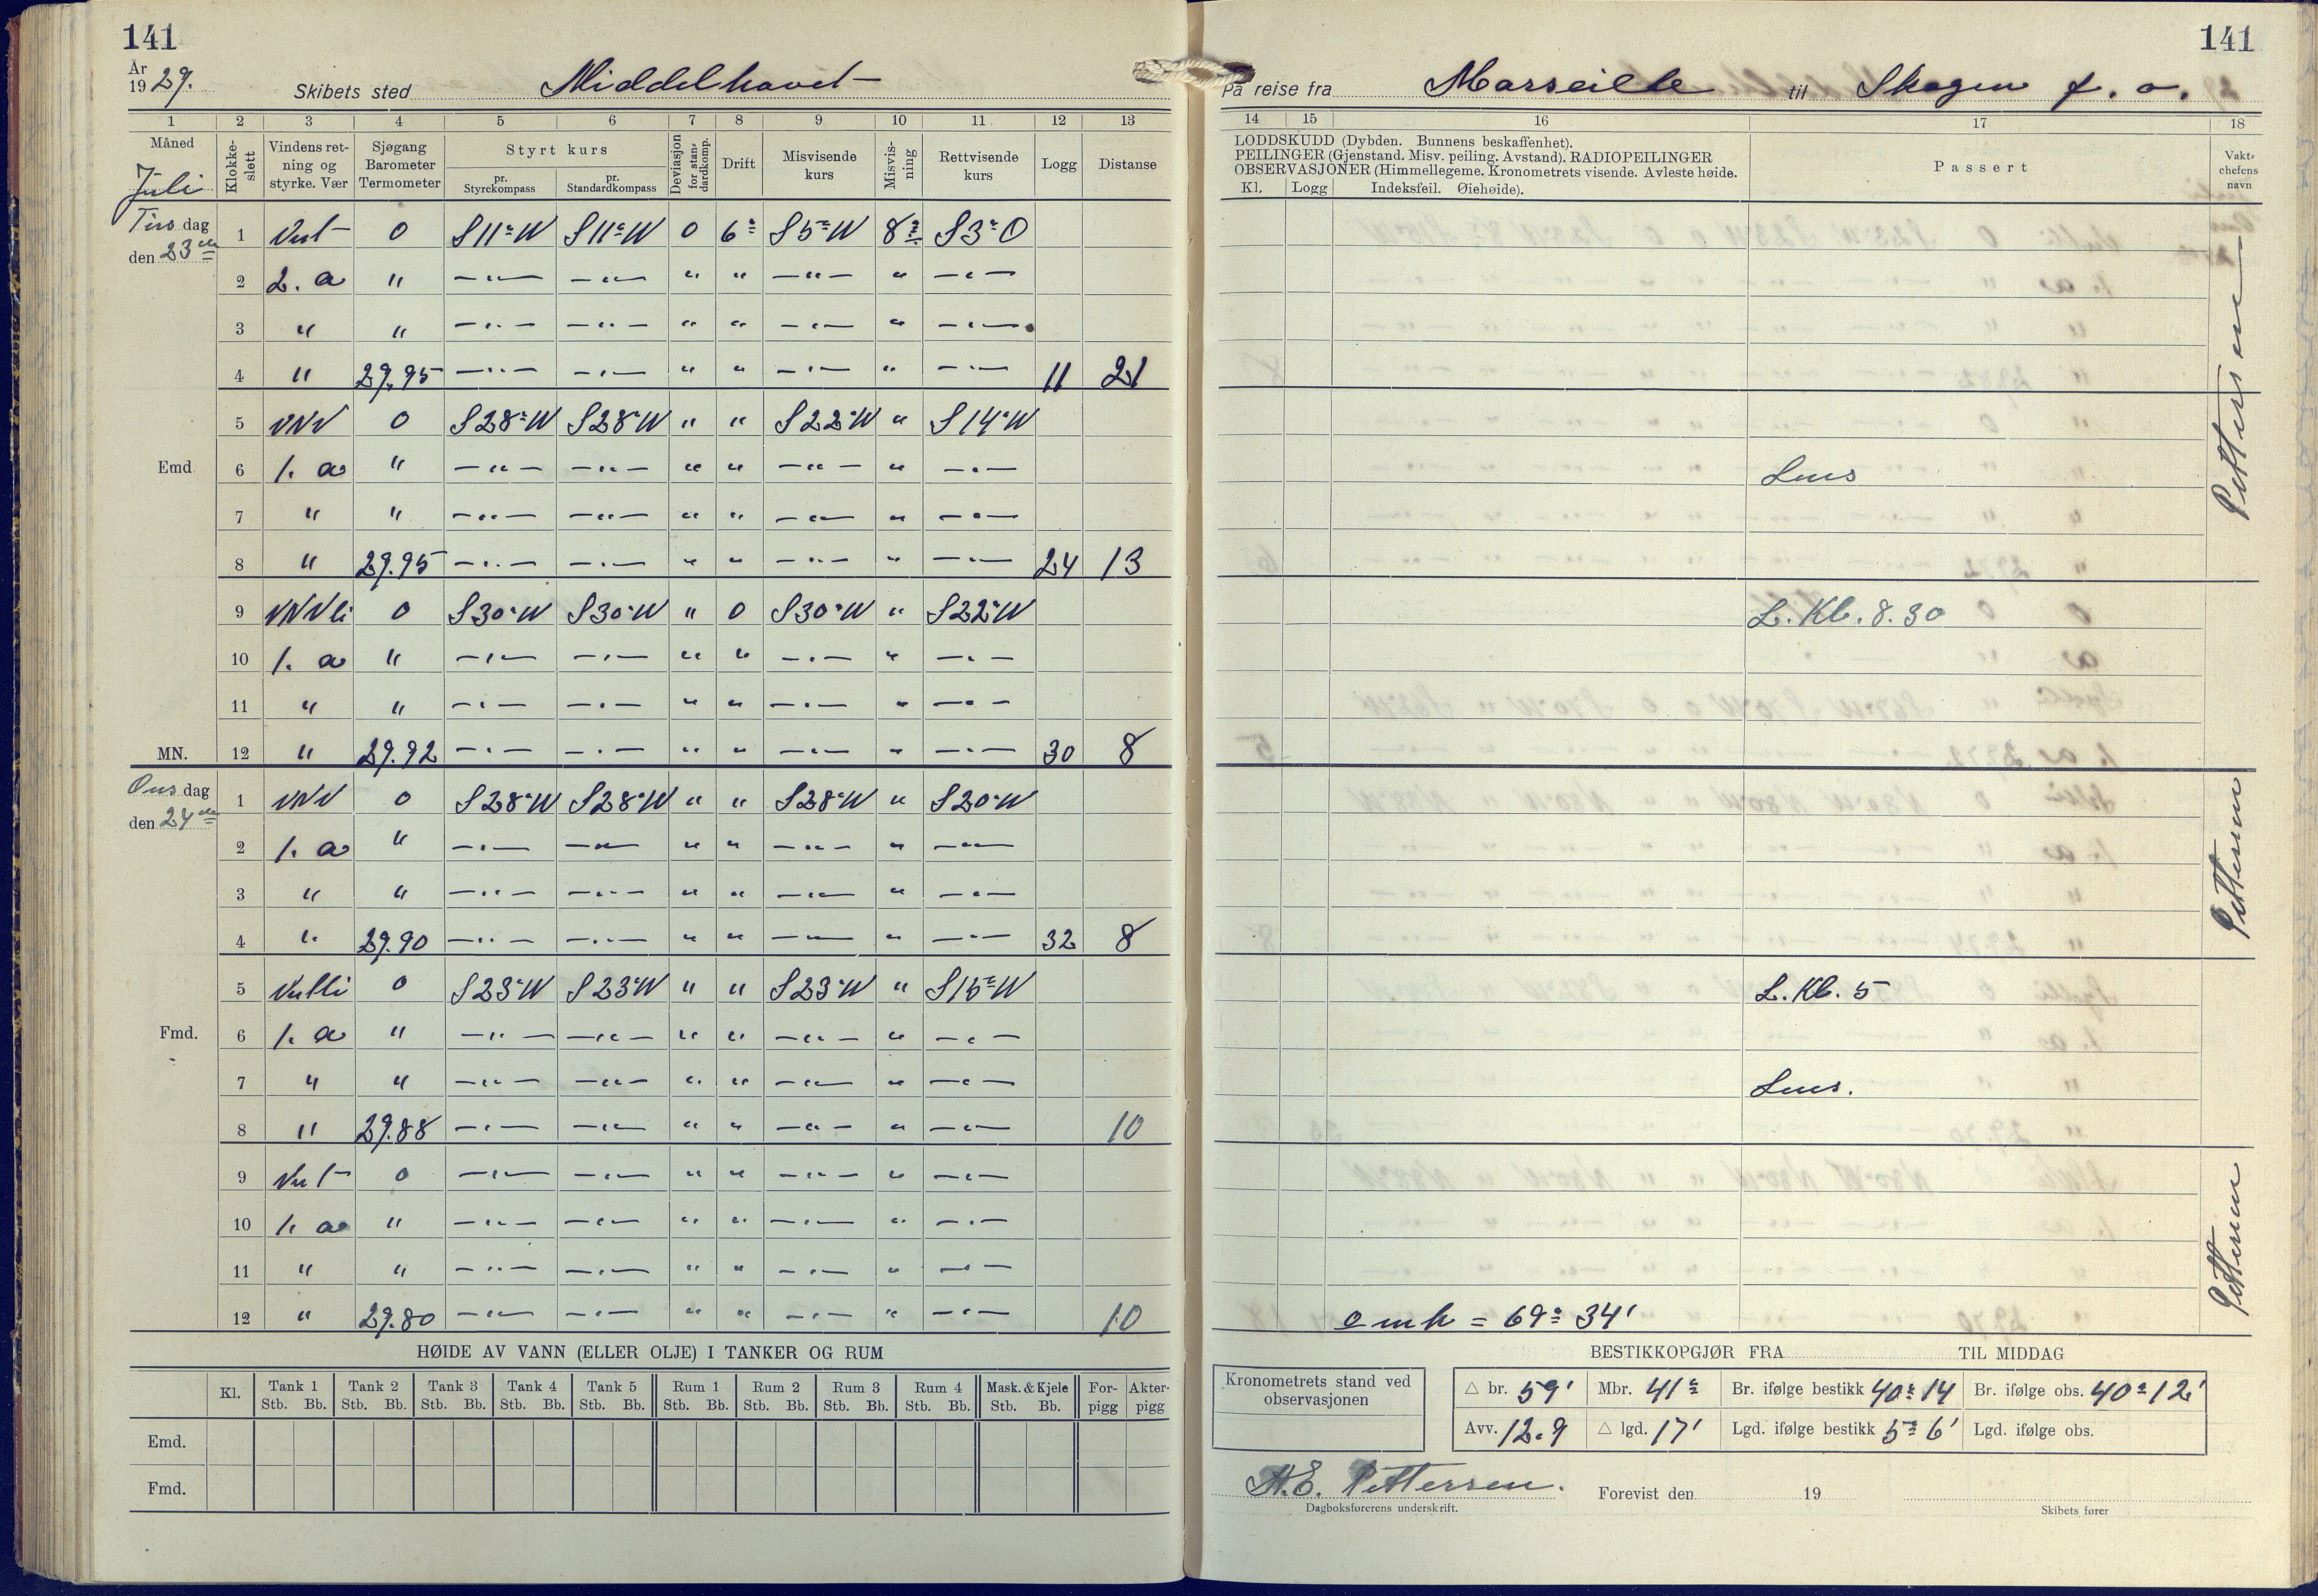 141
År 1929. Skibets sted Middelhavet
1 2 3 4 5 6 7 8 9 10 11 12 13
Måned Juli
Klokkeslett
Vindens retning og styrke. Vær
Sjøgang Barometer Termometer
Styrt kurs
pr. Styrekompass
pr. Standardkompass
Deviasjon for standardkomp.
Drift
Misvisende kurs
Misvisning
Rettvisende kurs
Logg
Distanse
Tirsdag den 23de
1 Vest 0 S11°W S11°W 0 6° S5°W 8° S3°O
2 2. a " —"— —"— " " —"— " —"—
3 " " —"— —"— " " —"— " —"—
4 " 29.95 —"— —"— " " —"— " —"— 11 21
5 VNV 0 S28°W S28°W " " S22°W " S14°W
Emd. 6 1. a " —"— —"— " " —"— " —"—
7 " " —"— —"— " " —"— " —"—
8 " 29.95 —"— —"— " " —"— " —"— 24 13
9 VNVli 0 S30°W S30°W " 0 S30°W " S22°W
10 1. a " —"— —"— " " —"— " —"—
11 " " —"— —"— " " —"— " —"—
MN. 12 " 29.92 —"— —"— " " —"— " —"— 30 8
Onsdag den 24de
1 VNV 0 S28°W S28°W " " S28°W " S20°W
2 1. a " —"— —"— " " —"— " —"—
3 " " —"— —"— " " —"— " —"—
4 " 29.90 —"— —"— " " —"— " —"— 32 8
5 Vestli 0 S23°W S23°W " " S23°W " S15°W
Fmd. 6 1. a " —"— —"— " " —"— " —"—
7 " " —"— —"— " " —"— " —"—
8 " 29.88 —"— —"— " " —"— " —"— 10
9 Vest 0 —"— —"— " " —"— " —"—
10 1. a " —"— —"— " " —"— " —"—
11 " " —"— —"— " " —"— " —"—
12 " 29.80 —"— —"— " " —"— " —"— 10
HØIDE AV VANN (ELLER OLJE) I TANKER OG RUM
Kl. Tank 1 Tank 2 Tank 3 Tank 4 Tank 5 Rum 1 Rum 2 Rum 3 Rum 4 Mask. & Kjele Forpigg Akterpigg
Stb. Bb. Stb. Bb. Stb. Bb. Stb. Bb. Stb. Bb. Stb. Bb. Stb. Bb. Stb. Bb. Stb. Bb. Stb. Bb.
Emd.
Fmd.
141
På reise fra Marseille til Skagen f. o.
14 15 16 17 18
LODDSKUDD (Dybden. Bunnens beskaffenhet).
PEILINGER (Gjenstand. Misv. peiling. Avstand). RADIOPEILINGER
OBSERVASJONER (Himmellegeme. Kronometrets visende. Avleste høide.
Kl. Logg Indeksfeil. Øiehøide).
Passert
Vaktchefens navn
Pettersen
Lens
L. Kl. 8.30
Pettersen
L. Kl. 5
Lens.
Pettersen
o mh = 69° 34'
BESTIKKOPGJØR FRA TIL MIDDAG
Kronometrets stand ved observasjonen
△ br. 59' Mbr. 41° Br. ifølge bestikk 40° 14 Br. ifølge obs. 40° 12'
Avv. 12.9 △ lgd. 17' Lgd. ifølge bestikk 5° 6' Lgd. ifølge obs.
H.E. Pettersen.
Dagboksførerens underskrift.
Forevist den 19
Skibets fører